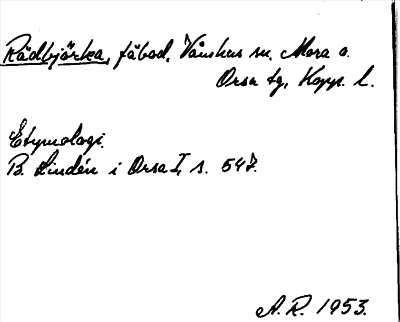 Rädbjörka, fäbod, Våmhus sn, Mora o.
Orsa tg, Kopp. l.
Etymologi.
B. Lindén i Orsa I, s. 547.
A.R. 1953.